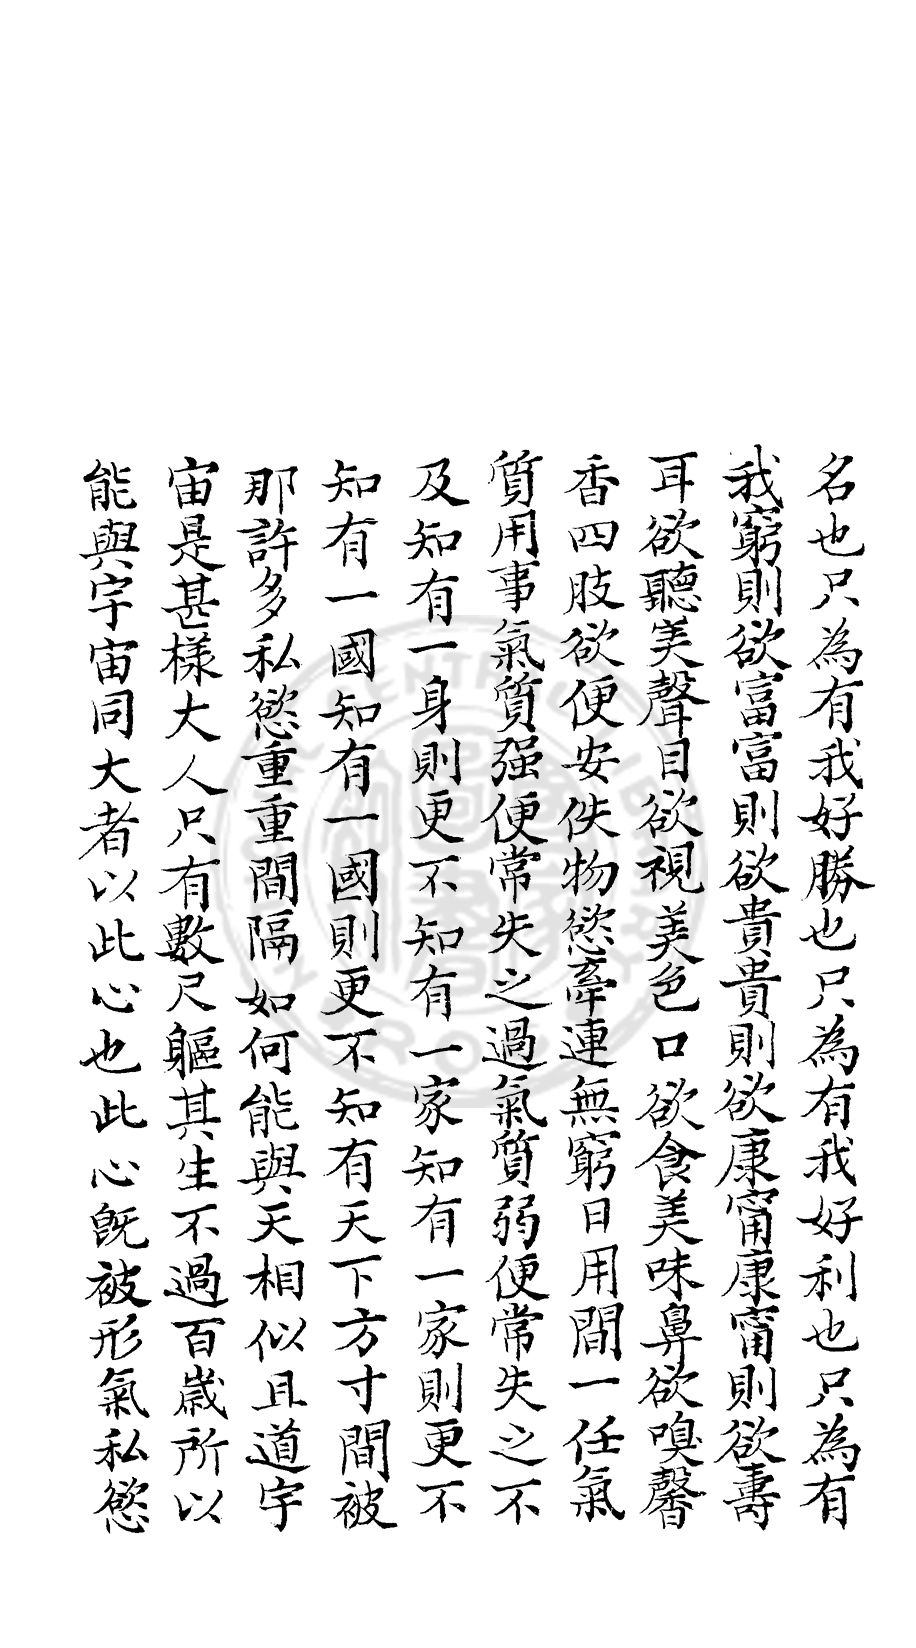 名也只為有我好勝也只為有我好利也只為有
我窮則欲富富則欲貴貴則欲康甯康甯則欲壽
耳欲聽美聲目欲視美色口欲食美味鼻欲嗅馨
香四肢欲便安佚物慾牽連無窮日用間一任氣
質用事氣質强便常失之過氣質弱便常失之不
及知有一身則更不知有一家知有一家則更不
知有一國知有一國則更不知有天下方寸間被
那許多私慾重重間隔如何能與天相似且道宇
宙是甚樣大人只有數尺軀其生不過百歲所以
能與宇宙同大者以此心也此心旣被形氣私慾